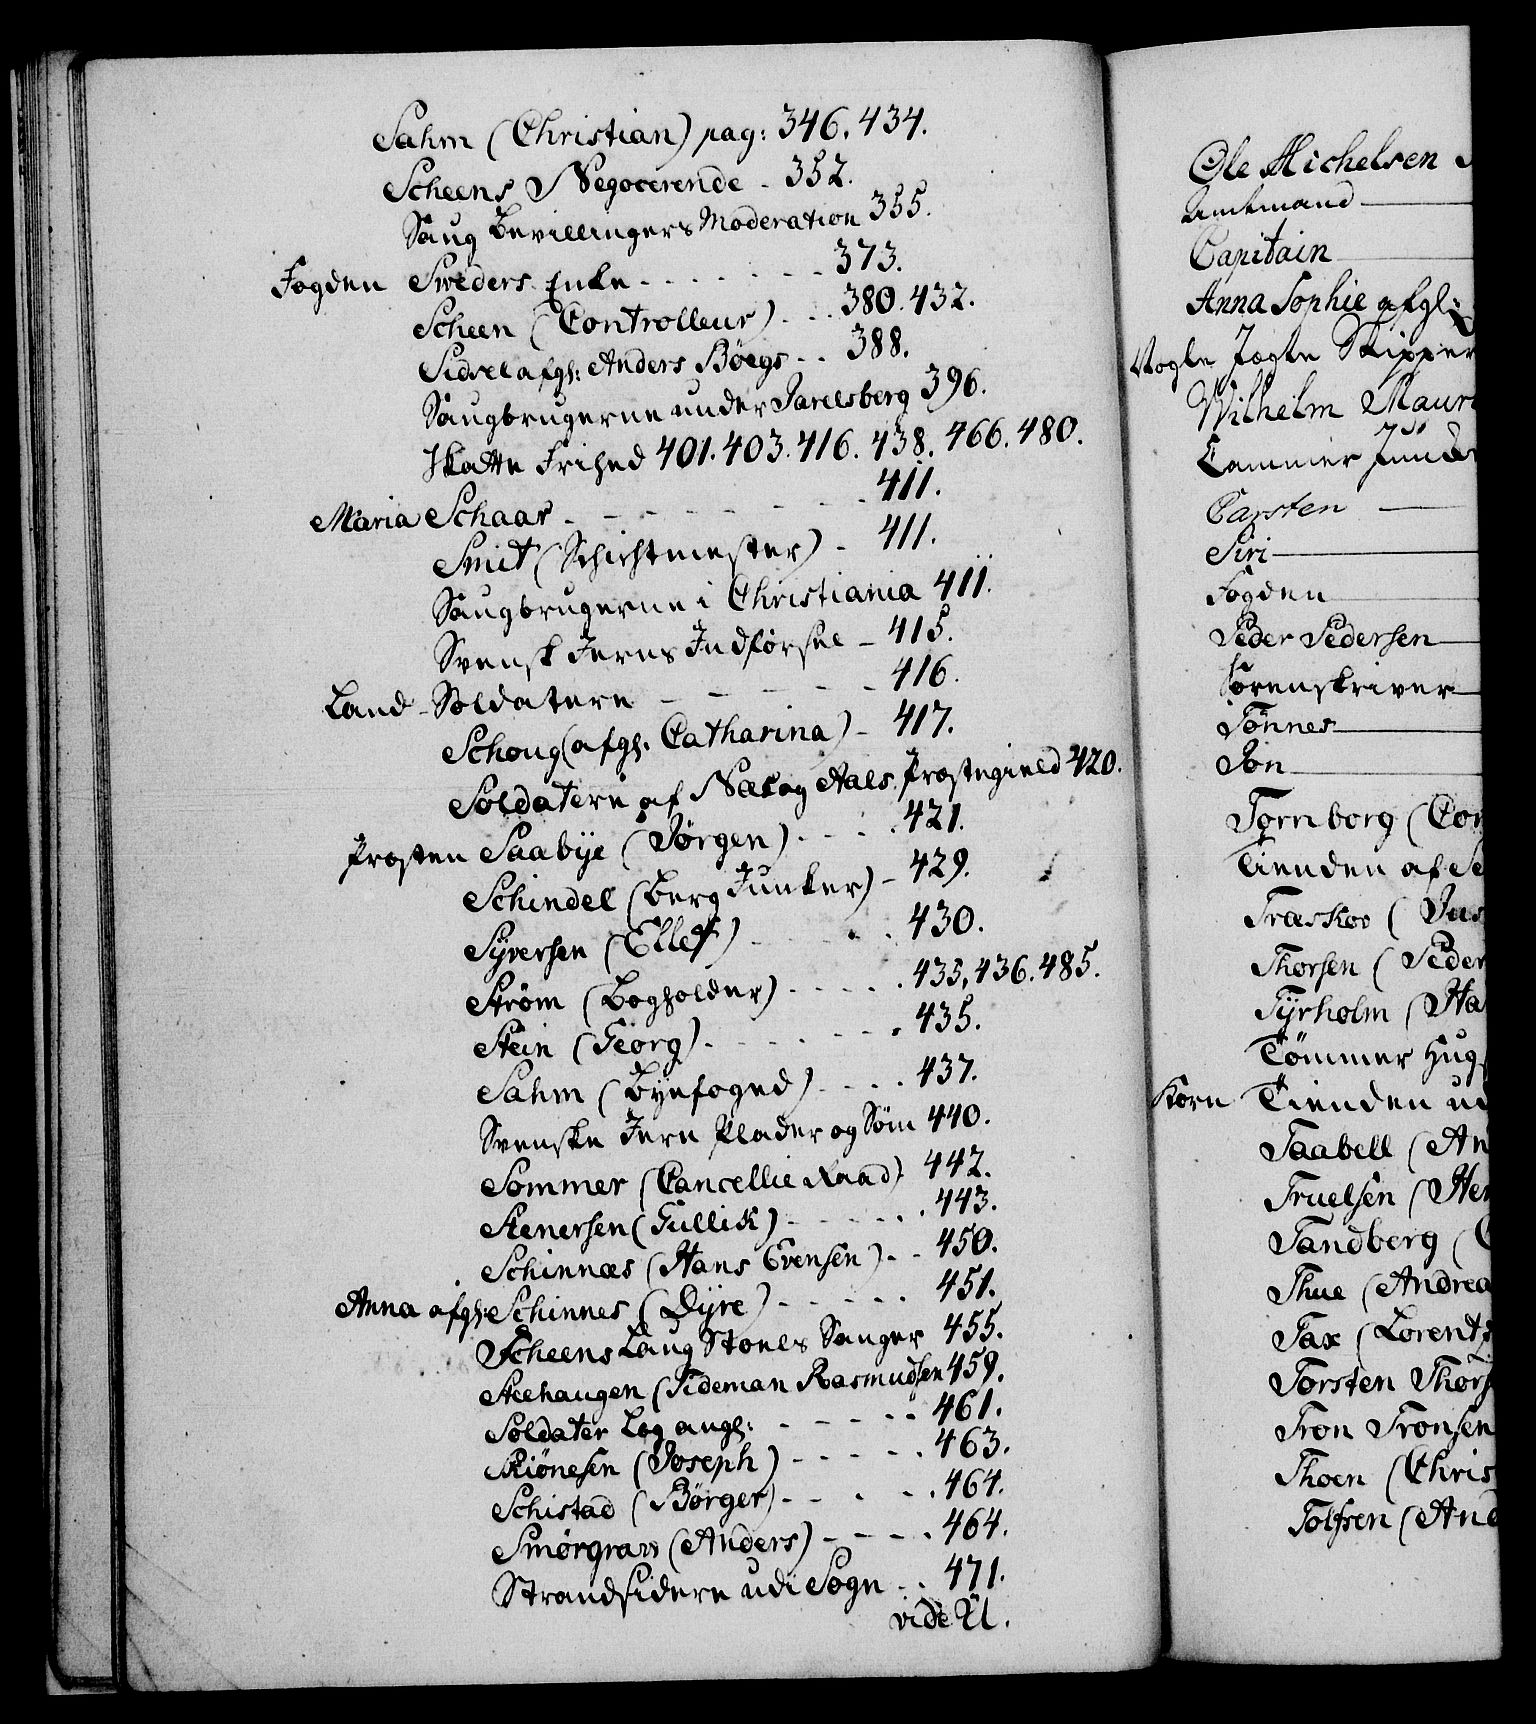 Sahm (Christian) pag: 346. 434.
Scheens Negocerende - 352.
Saug Bevillingers Moderation 355.
Fogden Sweders Enke - - - - - - 373.
Scheen (Controlleur) - - . 380. 432.
Sidsel afgl: Anders Böegs - - 388.
Saugbrugerne under Jarlsberg 396.
Skatte Frihed 401. 403. 416. 438. 466. 480.
Maria Schaar - - - - - - - 411.
Smit (Schichtmester) - 411.
Saugbrugerne i Christiania 411.
Svensk Jerns Indførsel - 415.
Land-Soldatere - - - - - 416.
Schoug (afgl. Catharina) - 417.
Soldatere af Næs og Aals Prestegield 420.
Provsten Saabye (Jørgen) - - - . 421.
Schindel (Berg Junker) - 429.
Syversen (Ellef) - - - . . 430.
Strøm (Bogholder) - - - - . 435, 436. 485.
Stein (Georg) - - - - - . 435.
Sahm (Byefoged) - - - . 437.
Svenske Jern Plader og Søm 440.
Sommer (Cancellie Raad) 442.
Stenersen (Gullik) - - - - . 443.
Schinnæs (Hans Evensen) - - 450.
Anna afgl: Schinnes (Dyre) - - - - - 451.
Scheens Laug Stoels Sanger 455.
Steehaugen (Tideman Rasmudsen 459.
Soldater Log angl: - - - - - 461.
Skiönesen (Joseph) - - - - . 463.
Schistad (Børger) - - . - . 464.
Smørgrav (Anders) - - - . 464.
Strandsidere udi Sogn - . 471.
vide U.
Ole Michelsen
Amtmand
Capitain
Anna Sophie afgl:
Jagte Skipper
Wilhelm Mauri
Cammer Junk
Carsten
Siri
Fogden
Peder Pedersen
Sorenskriver
Tönnes
Jon
Tornborg (Con
Tienden af Se
Træskoe (Jus
Thorsen (Peder
Tyrholm (Ha
Tömmer Hugs
Korn Tienden ud
Taabell (An
Truelsen (Hen
Tandberg (C
Thue (Andrea
Tax (Lorents
Torsten Thors
Tron Tronsen
Thoen (Chris
Tolfsen (And